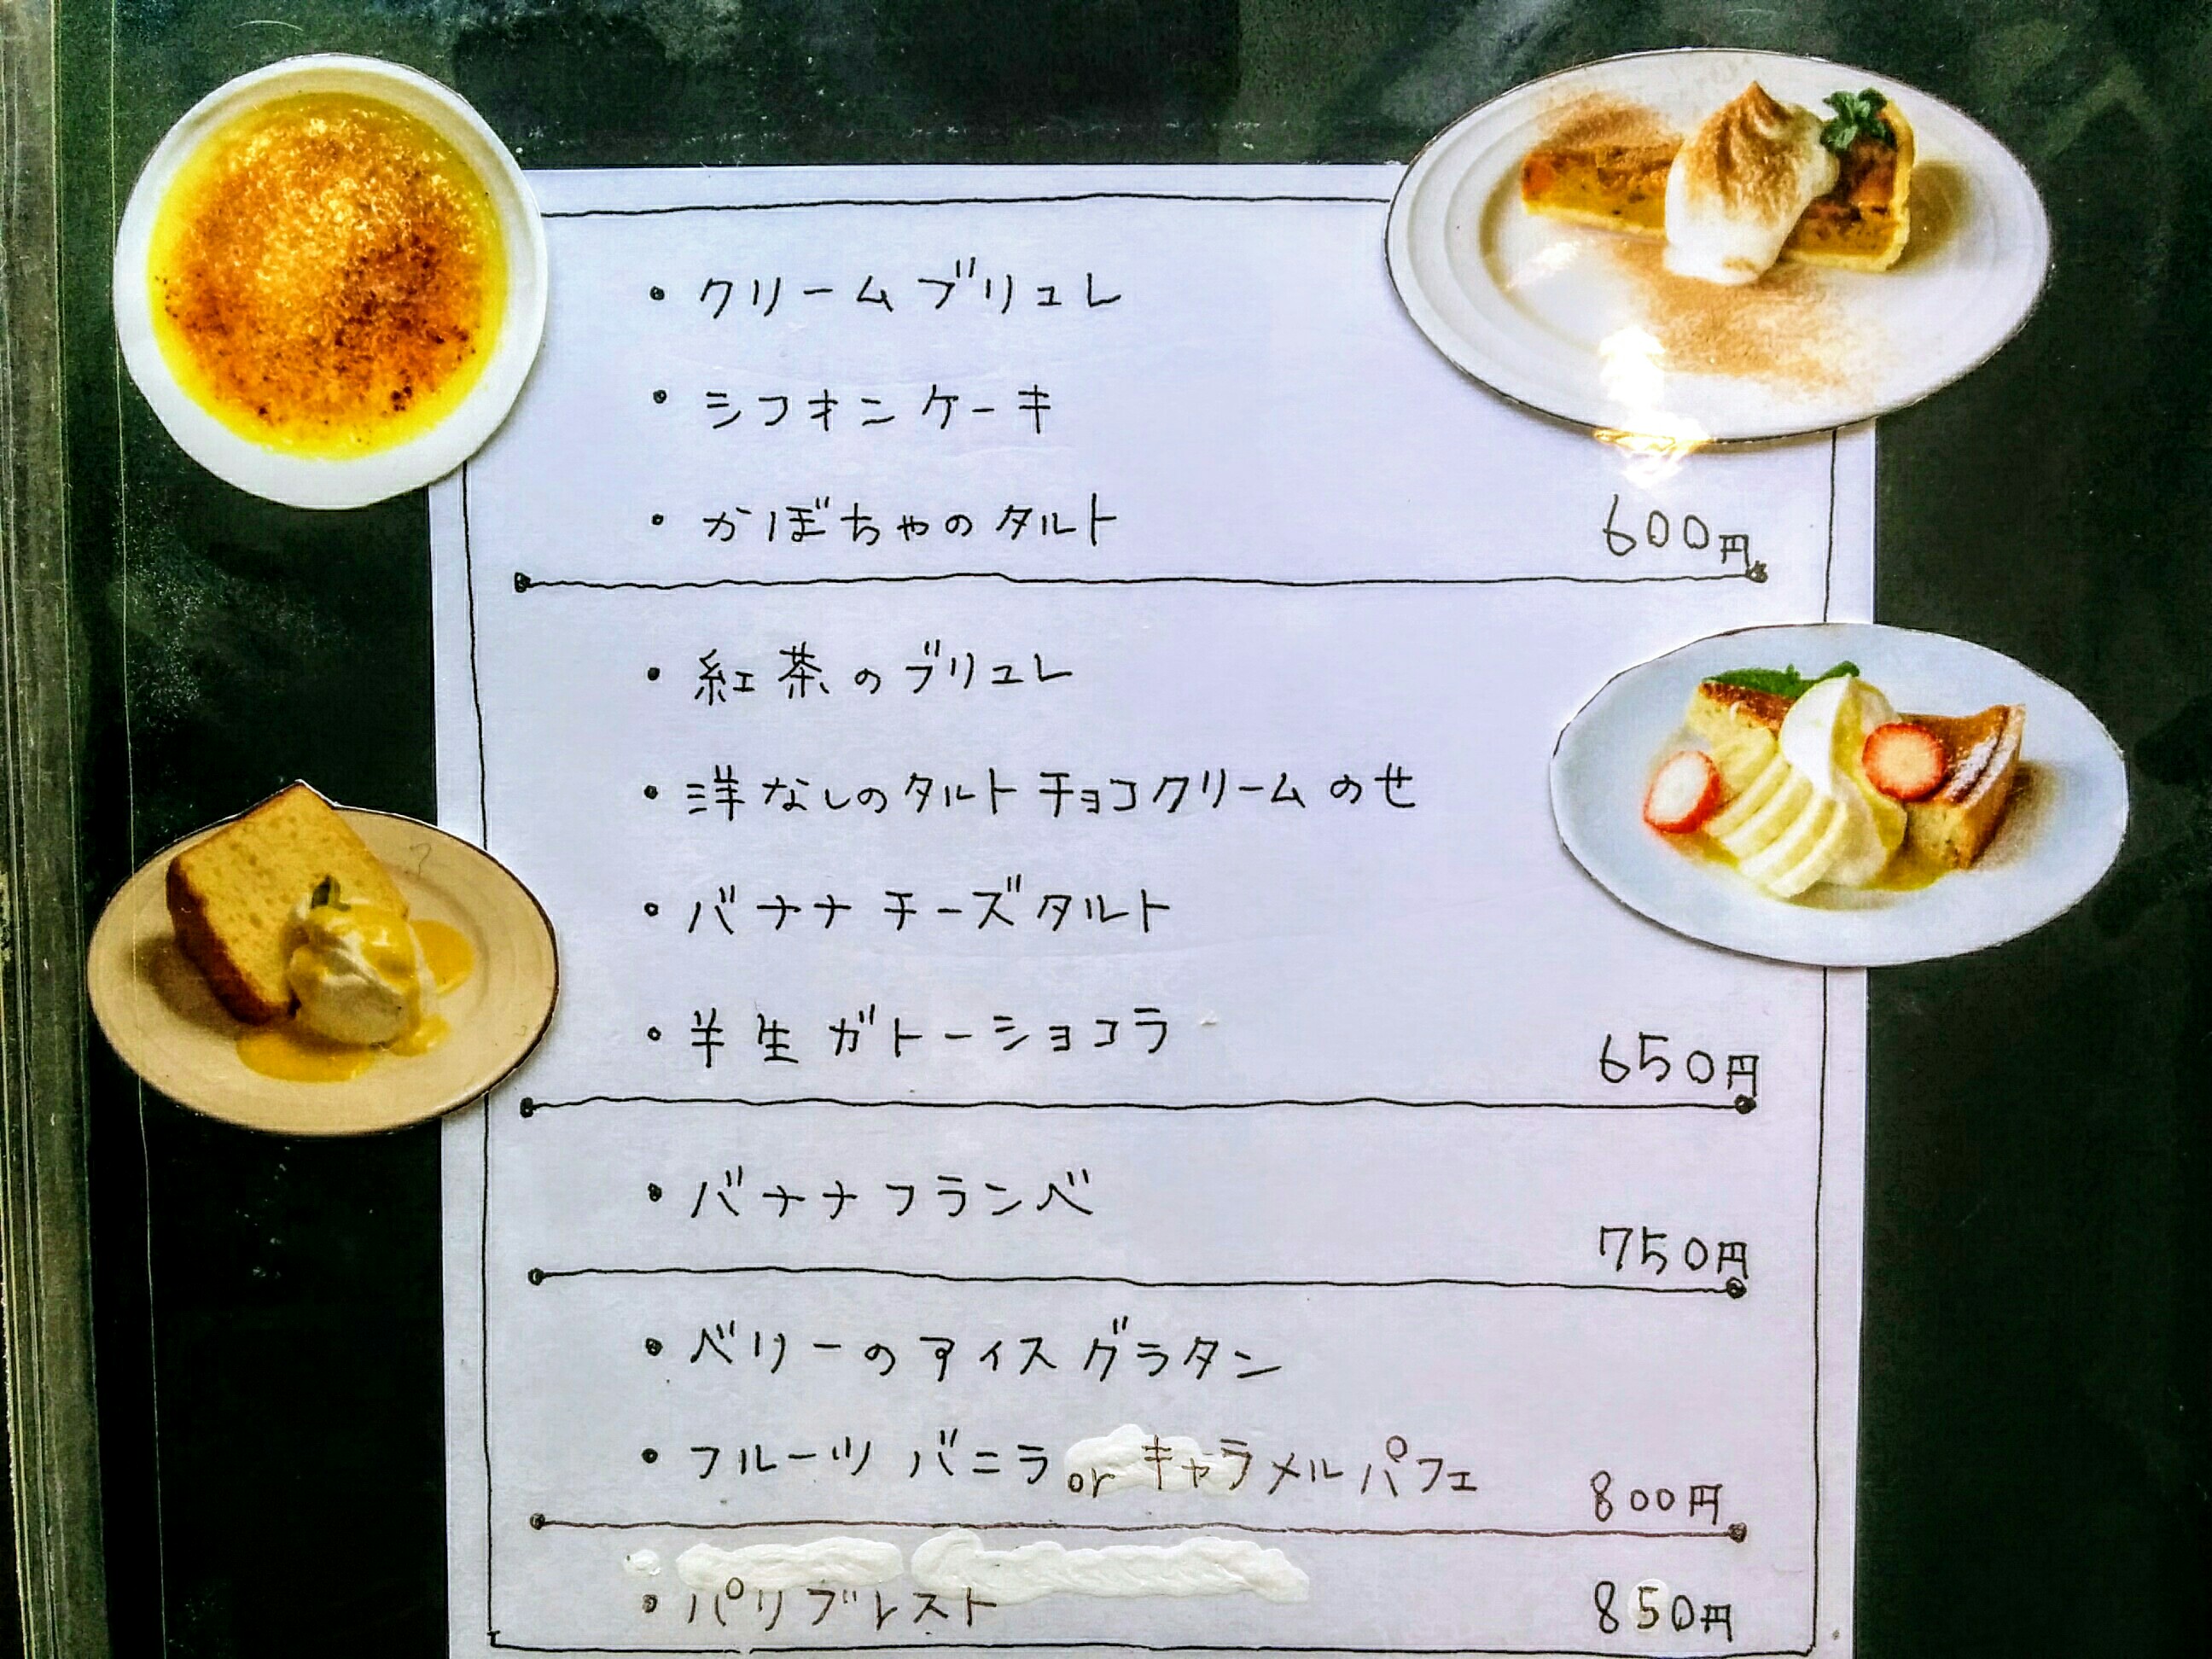 ・クリームブリュレ
・シフォンケーキ
・かぼちゃのタルト 600円
・紅茶のブリュレ
・洋なしのタルト チョコクリームのせ
・バナナチーズタルト
・半生ガトーショコラ 650円
・バナナフランベ
750円
・ベリーのアイスグラタン
・フルーツ バニラ or キャラメルパフェ 800円
・パリブレスト 850円